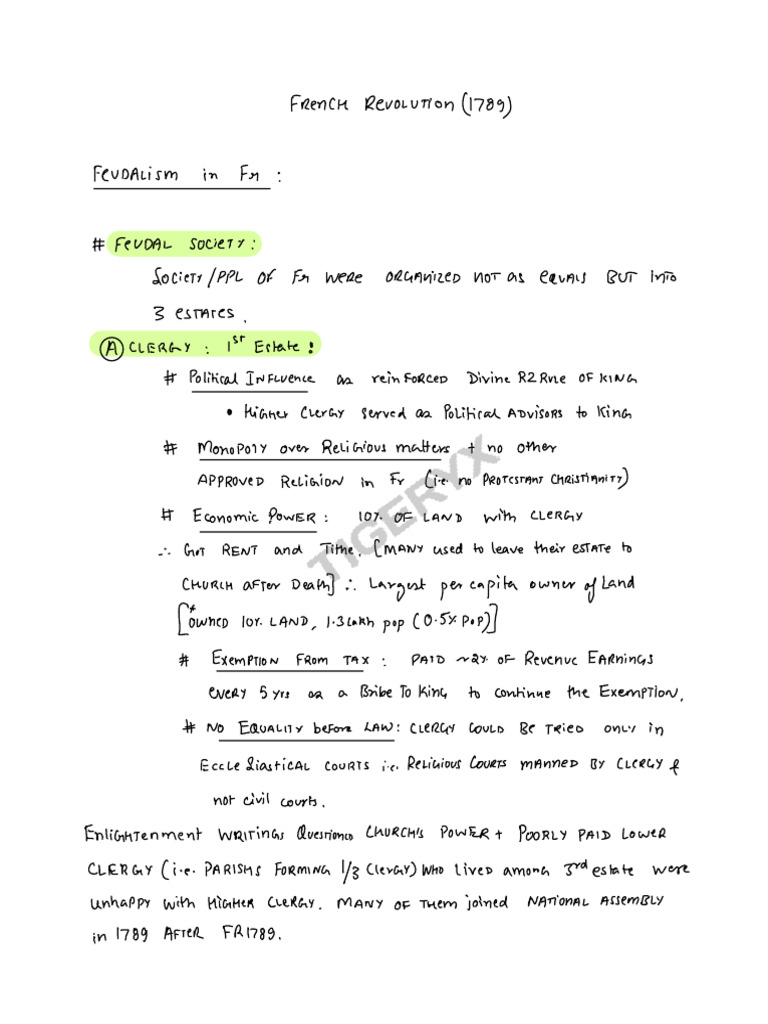 FRENCH REVOLUTION (1789)
FEUDALISM in Fr :
# FEUDAL SOCIETY :
SOCIETY/PPL OF Fr WERE ORGANIZED NOT as equals BUT into
3 ESTATES.
Ⓐ CLERGY : 1st Estate :
# Political INFLUENCE as reinFORCED Divine R2Rule OF KING
• Higher Clergy served as Political Advisors to King
# Monopoly over Religious matters + no other
APPROVED RELIGION in Fr (i.e. no PROTESTANT CHRISTIANITY)
# Economic Power : 10% OF LAND with CLERGY
∴ Got RENT and Tithe. [MANY used to leave their ESTATE to
CHURCH after Death] ∴ Largest per capita owner of Land
[*OWNED 10% LAND, 1.3 Lakh pop (0.5% pop)]
# EXEMPTION FROM TAX : PAID ~2% OF Revenue EARNINGS
every 5 yrs as a Bribe To King to continue the Exemption.
# NO EQUALITY before LAW : CLERGY COULD BE TRIED only in
Ecclesiastical COURTS i.e. Religious Courts MANNED BY CLERGY &
not civil courts.
Enlightenment WRITINGS Questioned CHURCH'S POWER + POORLY PAID LOWER
CLERGY (i.e. PARISHS FORMING 1/3 Clergy) WHO lived among 3rd estate were
unhappy with HIGHER CLERGY. MANY OF THEM joined NATIONAL ASSEMBLY
in 1789 AFTER FR1789.
TIGERYX